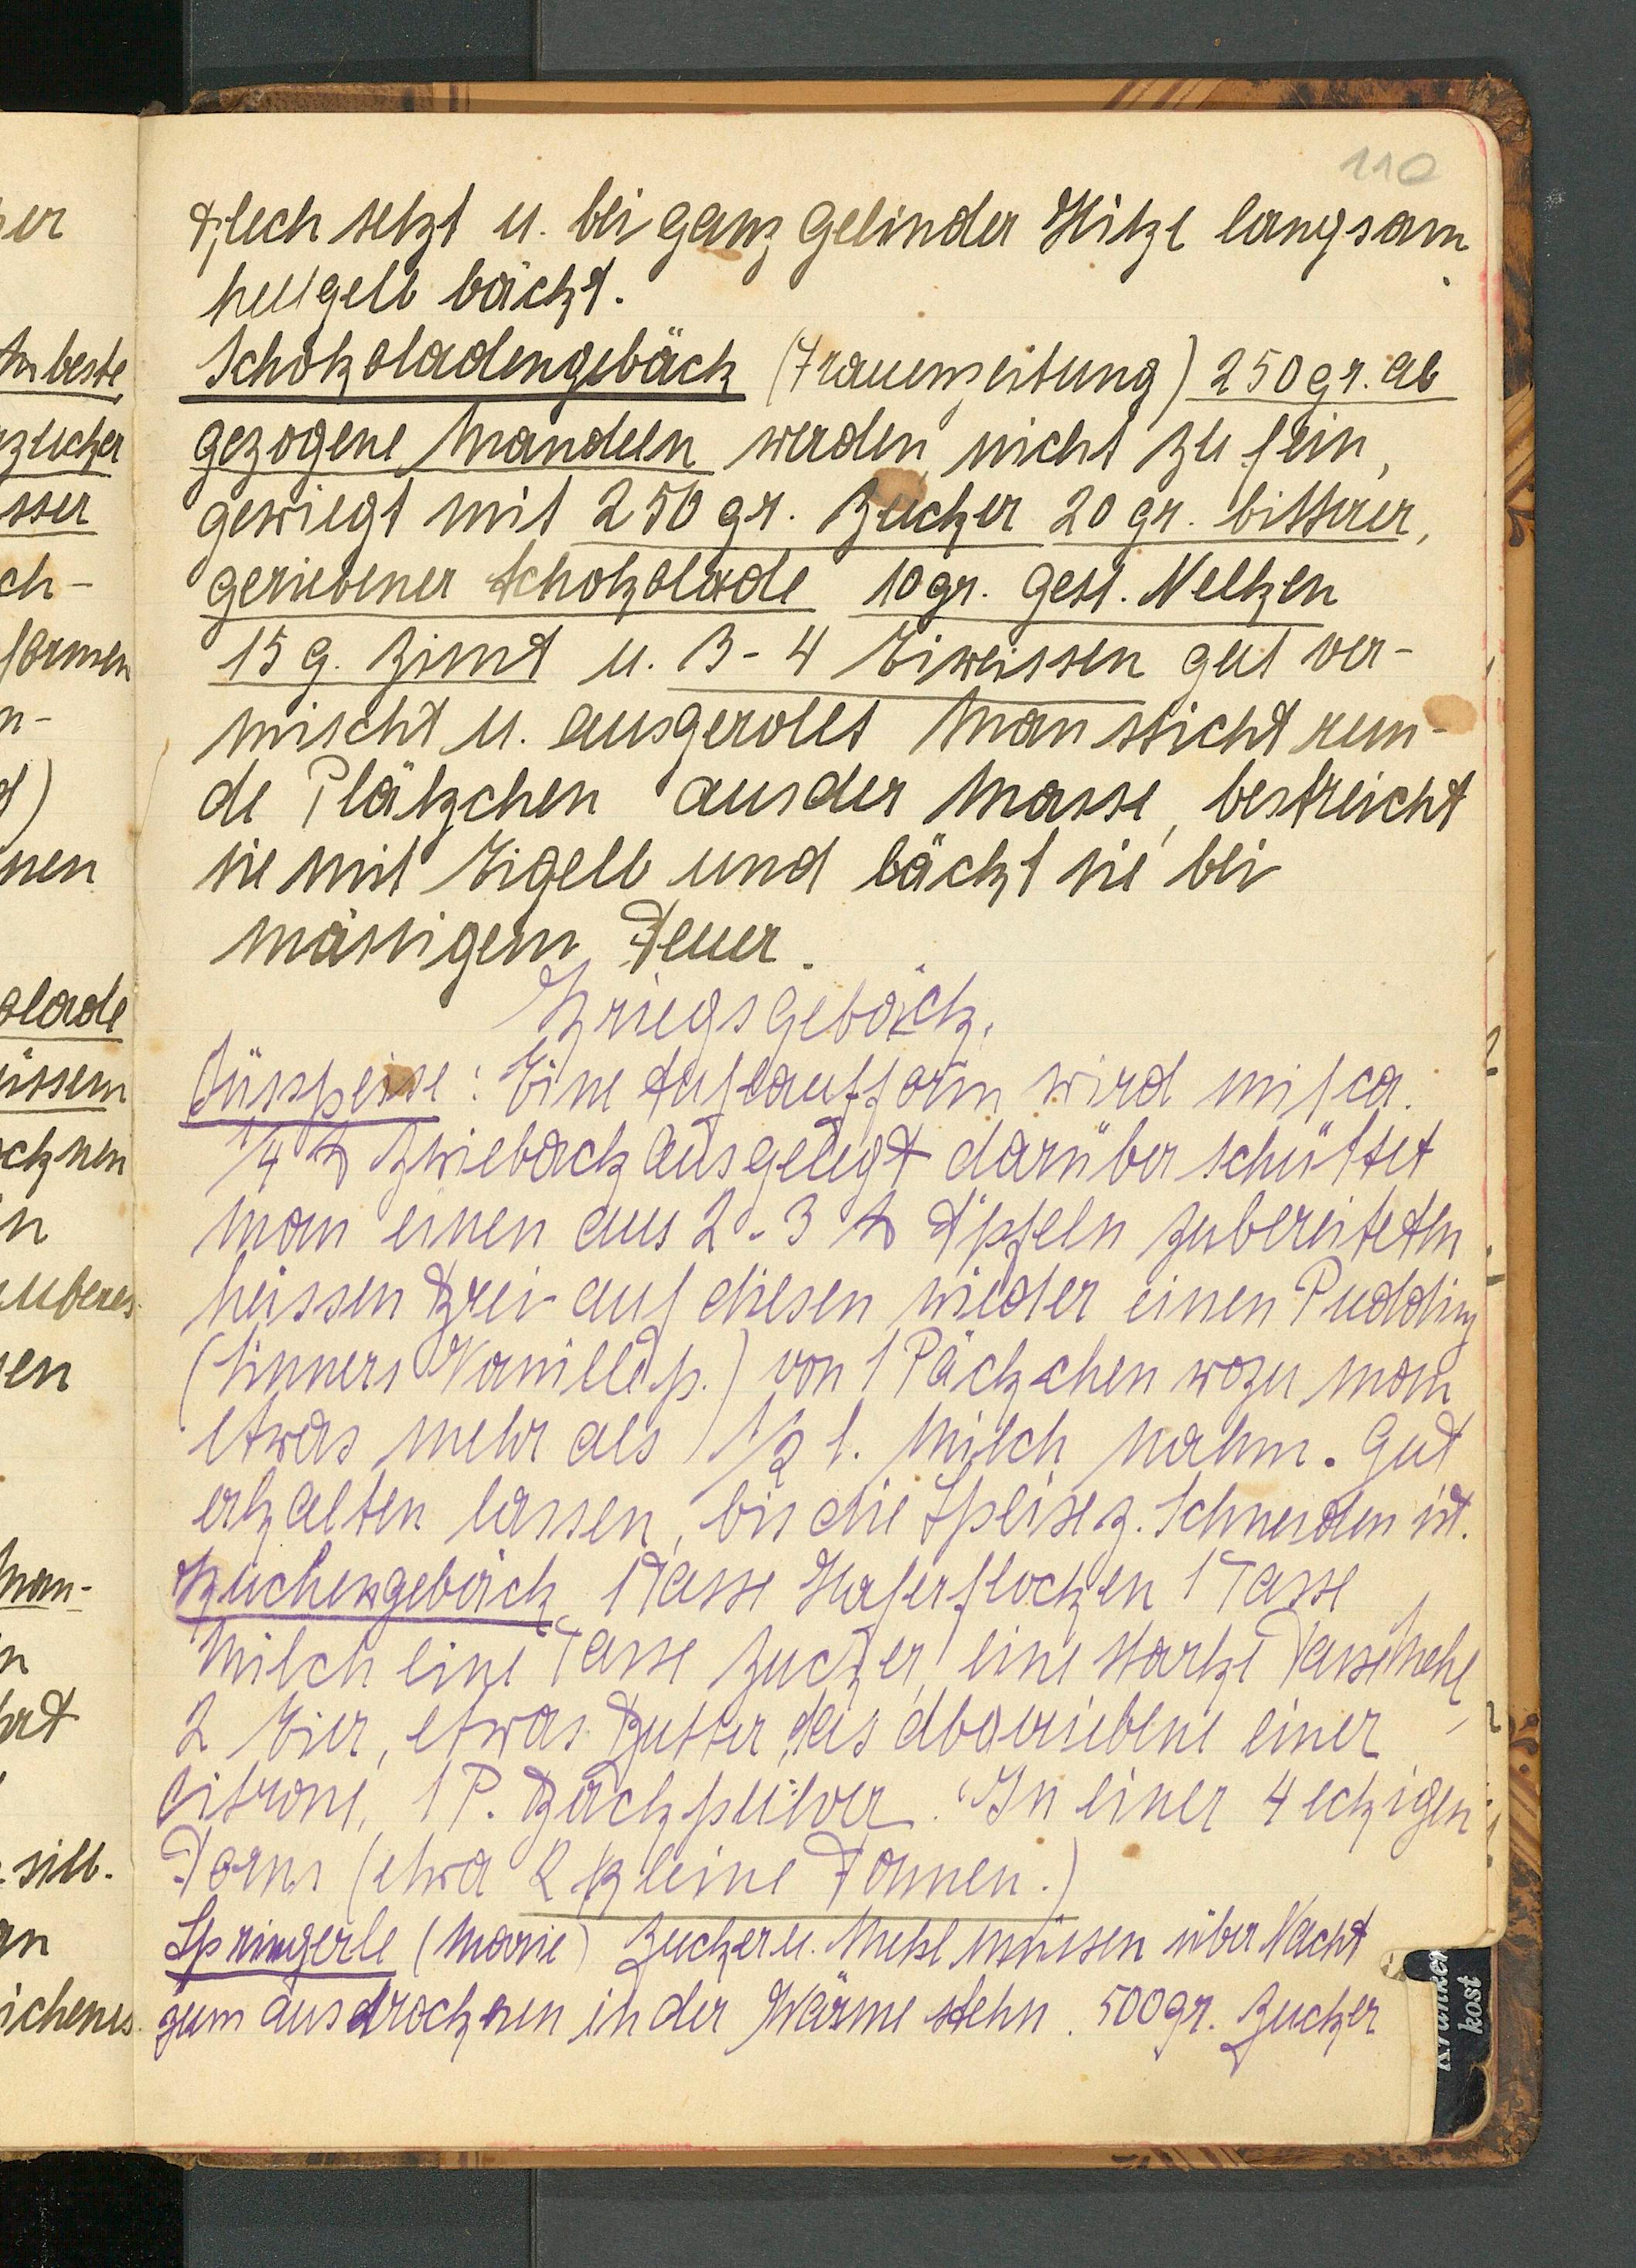 110
Blech setzt u. bei ganz gelinder Hitze langsam
hellgelb bäckt.
Schokoladengebäck (Frauenzeitung) 250 gr. ab
gezogene Mandeln werden nicht zu fein,
gewiegt mit 250 gr. Zucker 20 gr. bitterer,
geriebener Schokolade 10 gr. gest. Nelken
15 g. Zimt u. 3-4 Eiweissen gut ver-
mischt u. ausgerollt Man sticht run-
de Plätzchen aus der Masse, bestreicht
sie mit Eigelb und bäckt sie bei
mässigem Feuer.
Kriegsgebäck.
Süsspeise: Eine Auflaufform wird mit ca.
1/4 ℔ Zwieback ausgelegt darüber schüttet
man einen aus 2-3 ℔ Äpfeln zubereiteten
heissen Brei auf diesen wieder einen Pudding
(Sinners Vanillep.) von 1 Päckchen wozu man
etwas mehr als 1/2 l. Milch nahm. Gut
erkalten lassen, bis die Speise z. Schneiden ist.
Kuchengebäck 1 Tasse Haferflocken 1 Tasse
Milch eine Tasse Zucker, eine starke Tasse Mehl,
2 Eier, etwas Butter, das abgeriebene einer
Citrone, 1 P. Backpulver. In einer 4 eckigen
Form (etwa 2 kleine Formen.)
Springerle (Marie) Zucker u. Mehl müssen über Nacht
zum ausdrocknen in der Wärme stehn. 500 gr. Zucker
Kranken
kost
beste
zucker
sser
ch-
formen
n-
nen
olade
üssem
ocknen
uberes
sen
Man-
silb.
ichenes